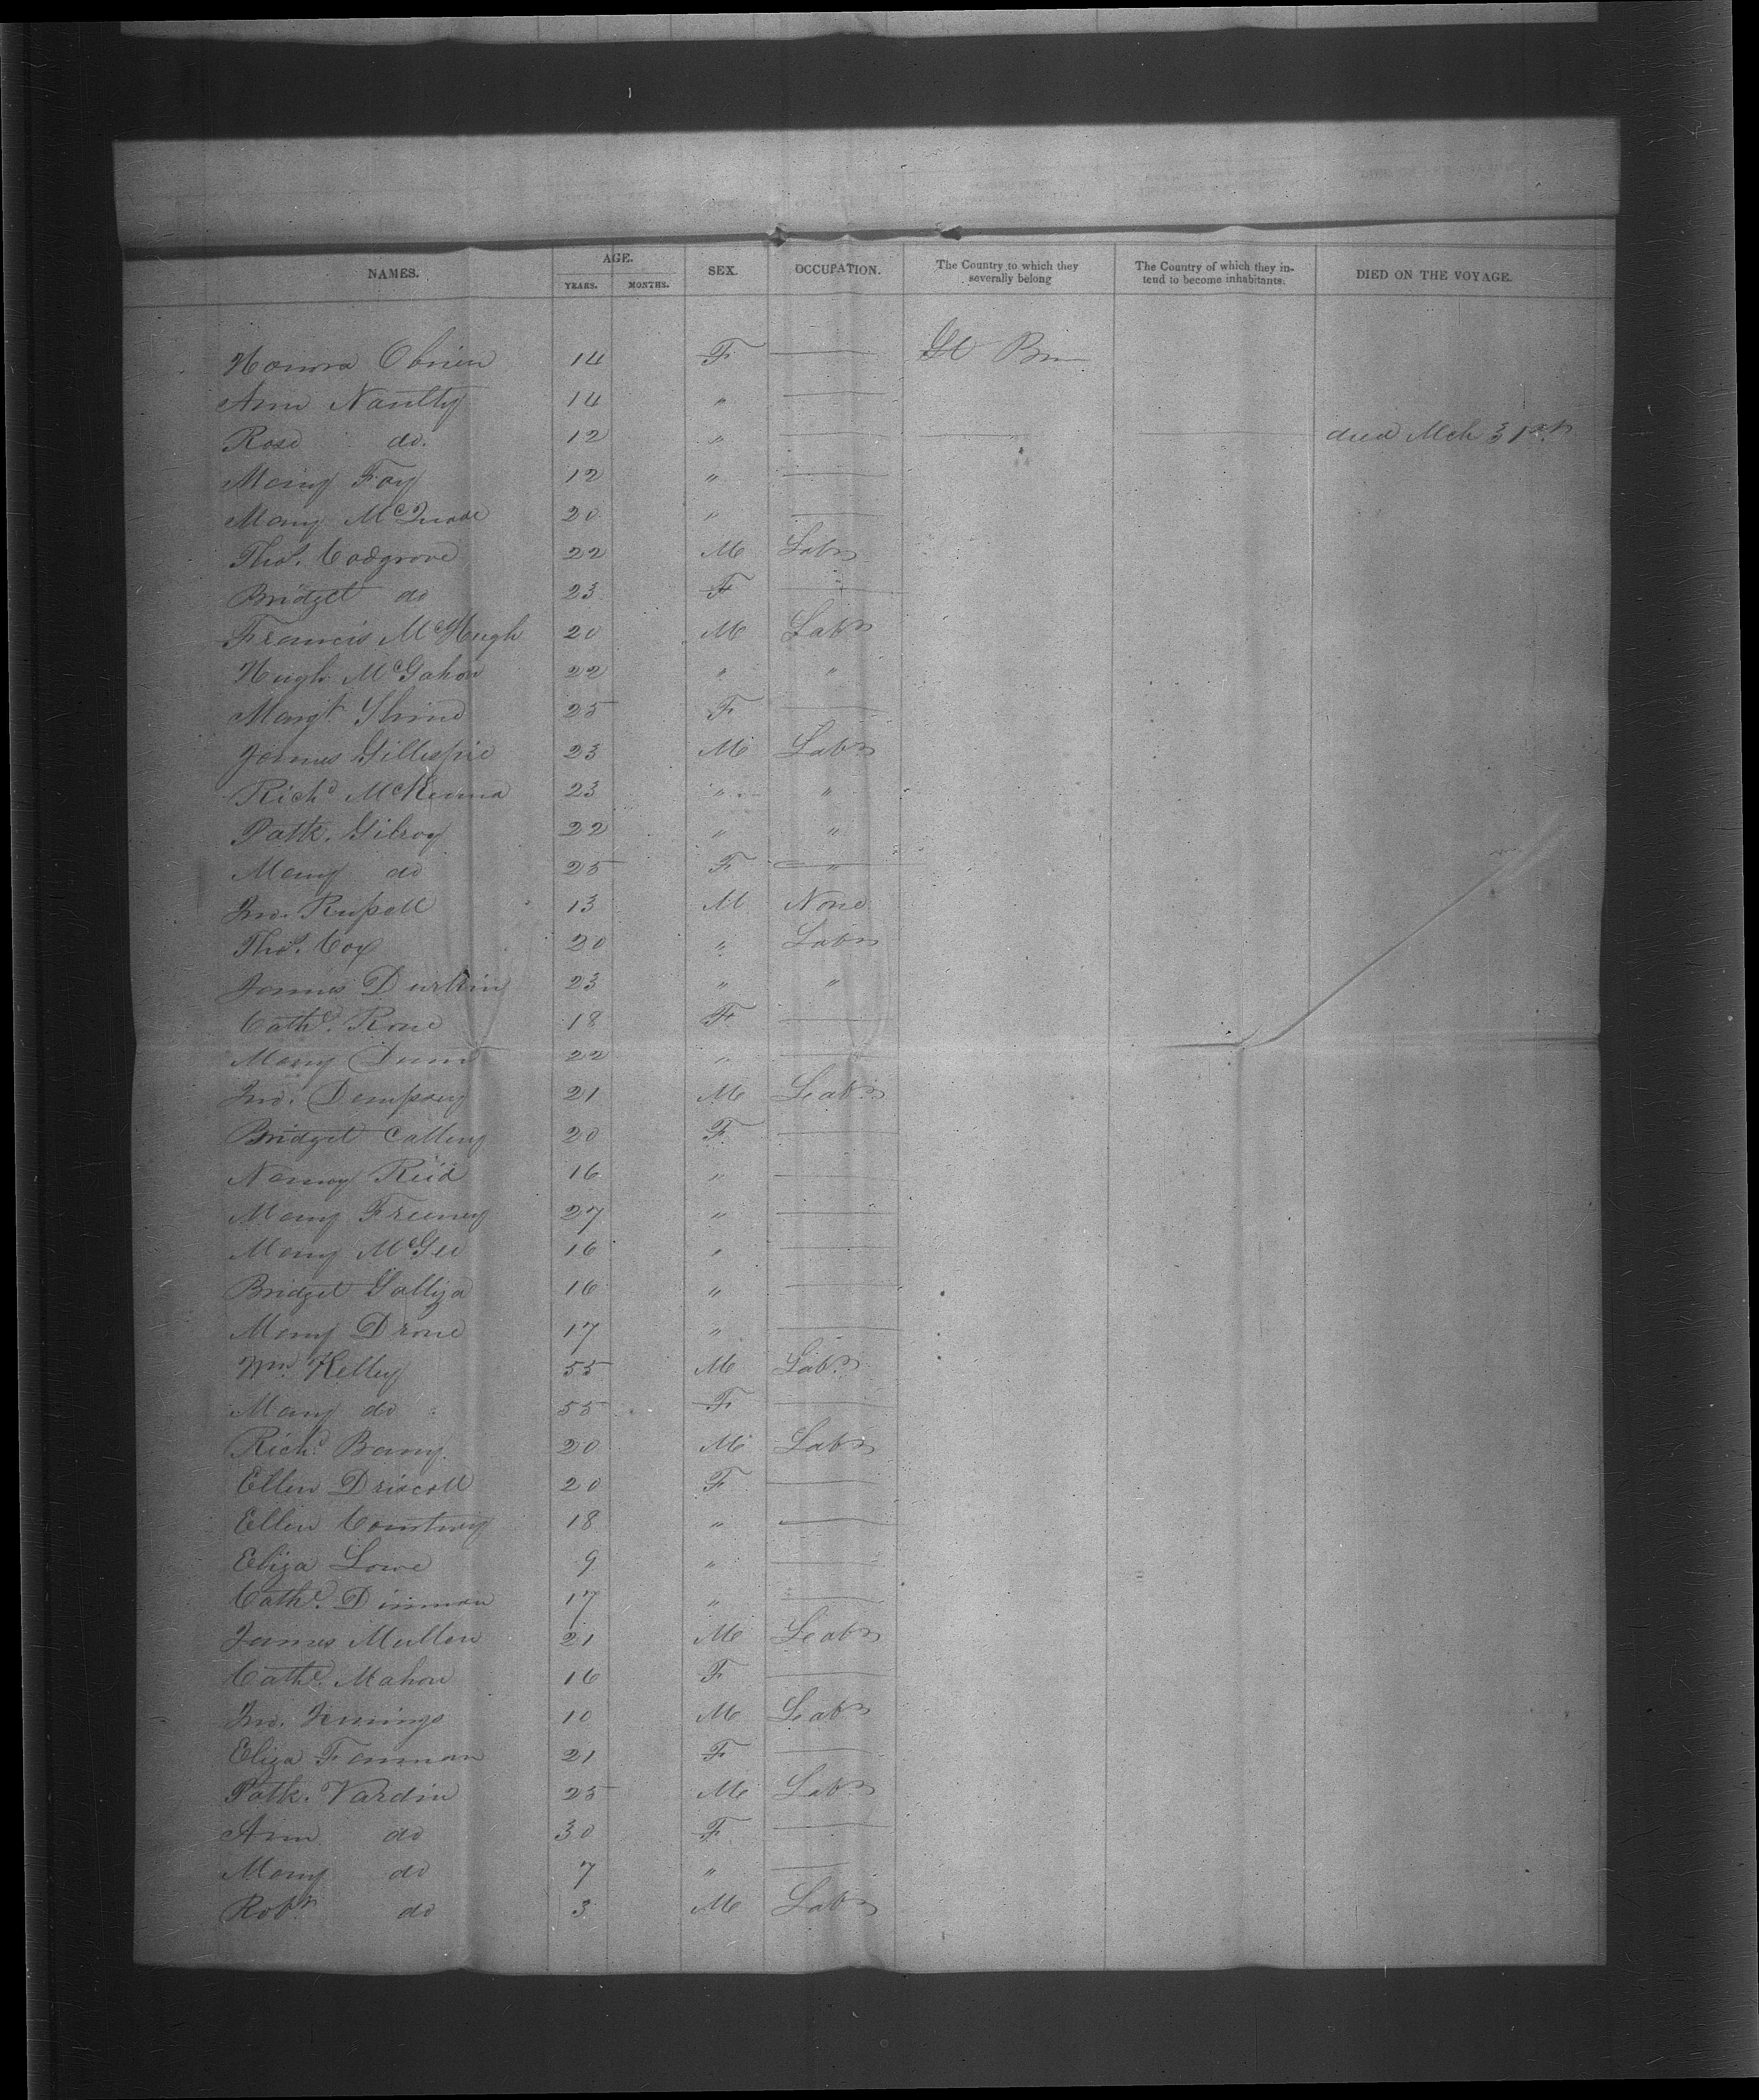 NAMES. AGE. SEX. OCCUPATION. The Country to which they severally belong The Country of which they intend to become inhabitants. DIED ON THE VOYAGE.
YEARS. MONTHS.
Honora Obrien 14 F — Gt Brn
Ann Naulty 14 " —
Rose do. 12 " — died Mch 31st
Mary Foy 12 " —
Mary McQuade 20 " —
Thos. Cosgrove 22 M Labr
Bridget do 23 F —
Francis McHugh 20 M Labr
Hugh McGahon 22 " "
Margt. 25 F —
James Gillespie 23 M Labr
Richd McKenna 23 " "
Patk. Gilroy 22 " "
Mary do 25 F — "
Jno. Russell 13 M None
Thos. Cox 20 " Labr
James Durkin 23 " "
Cathe. 18 F —
Mary Dunn 22 " —
Jno. Dempsey 21 M Labr
Bridget 20 F —
Nancy Reid 16 " —
Mary Freeney 27 " —
Mary McGee 16 " —
Bridget 16 " —
Mary 17 " —
Wm. Kelley 55 M Labr
Mary do 55 F —
Richd. Barry 20 M Labr
Ellen Driscoll 20 F —
Ellen Courtney 18 " —
Eliza Lowe 9 " —
Cathe. Dinman 17 " —
James Mullen 21 M Labr
Cathe. Mahon 16 F —
Jno. Jennings 10 M Labr
Eliza 21 F —
Patk. Vardin 25 M Labr
Ann do 30 F —
Mary do 7 " —
Robt. do 3 M Labr